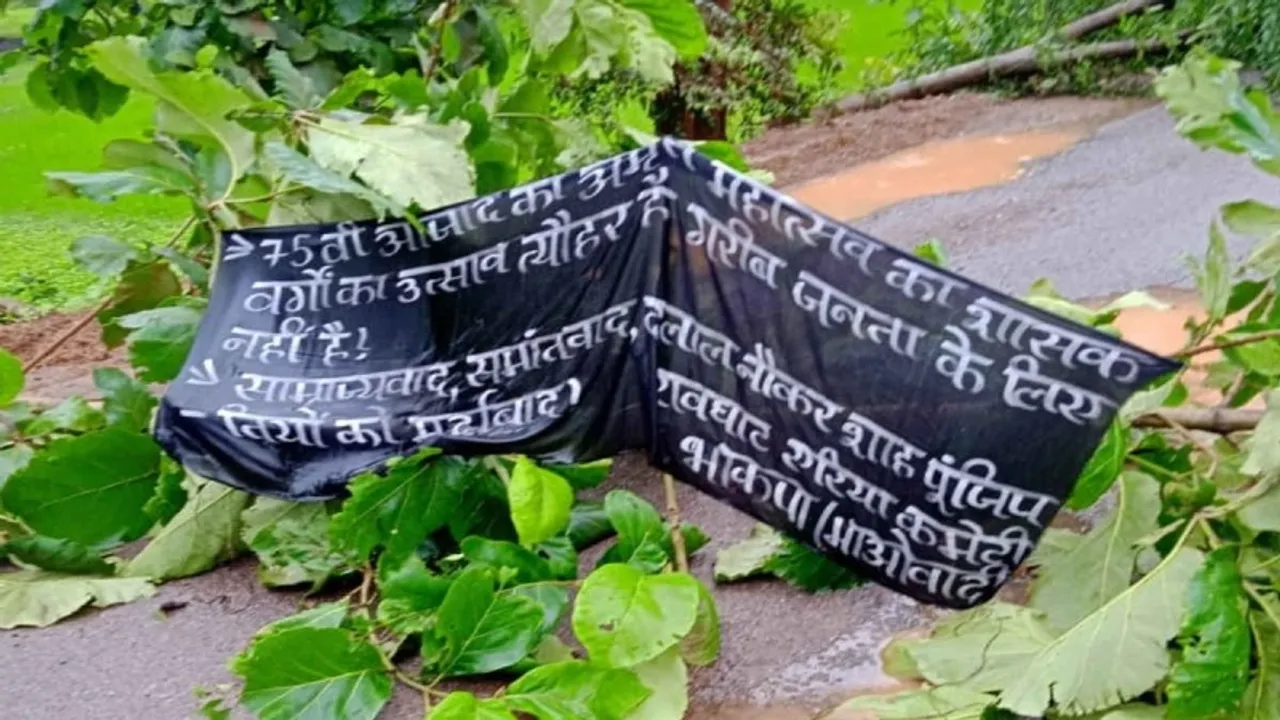 75वी आजाद का अमृत महोत्सव का शासक
वर्गों का उत्साव त्यौहर है गरीब जनता के लिए
नहीं है!
साम्राज्यवाद, समांतवाद, दलाल नौकर शाह पूंजिप
तियों को मुर्दाबाद)
रावघाट एरिया कमेटी
भाकपा (माओवादी